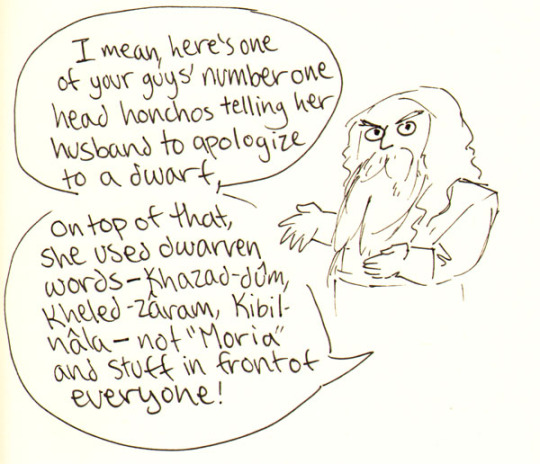 I mean, here's one
of your guys' number one
head honchos telling her
husband to apologize
to a dwarf,
on top of that,
she used dwarven
words—Khazad-dûm,
Kheled-zâram, Kibil-
nâla—not "Moria"
and stuff in front of
everyone!